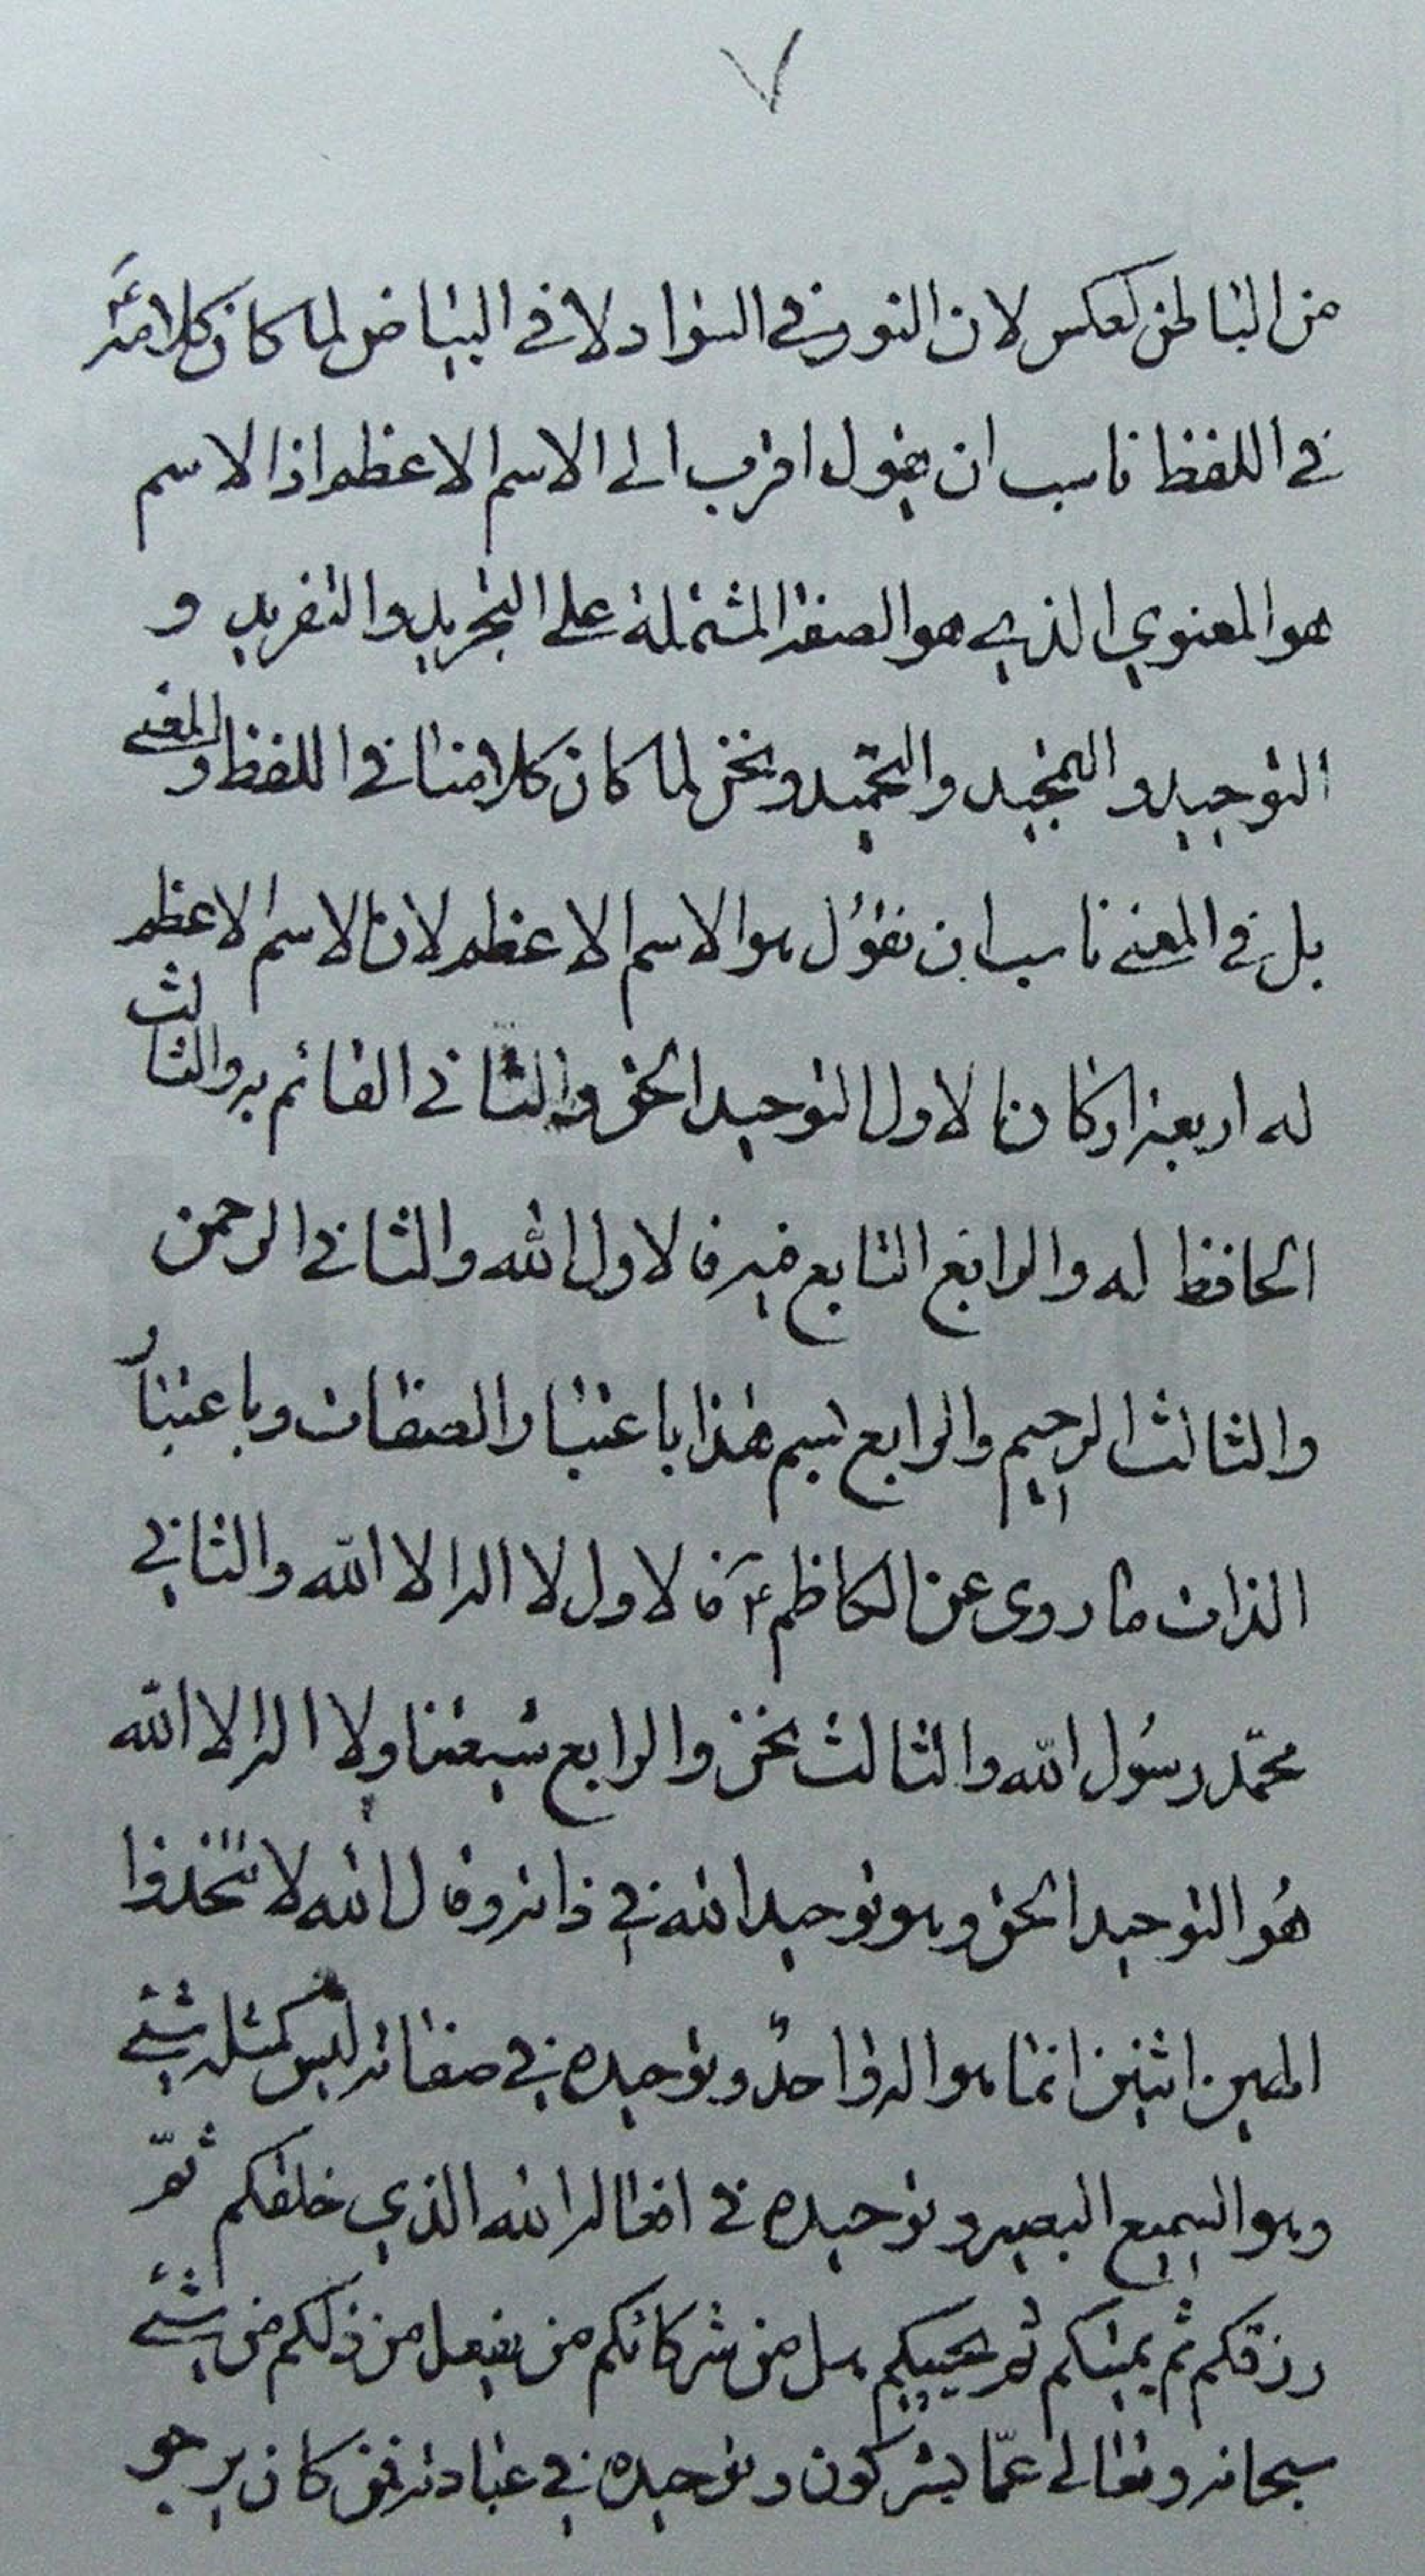 ٧
من الباطن لعكس لان النور في السواد لا في البياض لما كان كلامه ع
في اللفظ ناسب ان يقول اقرب الى الاسم الاعظم اذ الاسم
هو المعنوي الذي هو الصفة المشتملة على التجريد والتفريد و
التوحيد والتمجيد والتحميد ونحن لما كان كلامنا في اللفظ والمعنى
بل في المعنى ناسب ان نقول هو الاسم الاعظم لان الاسم الاعظم
له اربعة اركان الاول التوحيد الحق والثاني القائم به والثالث
الحافظ له والرابع التابع فيه فالاول الله والثاني الرحمن
والثالث الرحيم والرابع بسم هذا باعتبار الصفات وباعتبار
الذات ما روى عن الكاظم ع فالاول لا اله الا الله والثاني
محمّد رسُول الله والثالث نحن والرابع شيعتنا ولا اله الا الله
هُو التوحيد الحق وهو توحيد الله في ذاته وقال الله لا تتّخذوا
الهين اثنين انما هو اله واحدٌ وتوحيده في صفاته ليس كمثله شيء
وهو السميع البصير وتوحيده في افعاله الله الذي خلقكم ثمّ
رزقكم ثم يميتكم ثم يحييكم هل من شركائكم من يفعل من ذلكم من شيء
سبحانه وتعالى عمّا يشركون وتوحيده في عبادته فمن كان يرجو